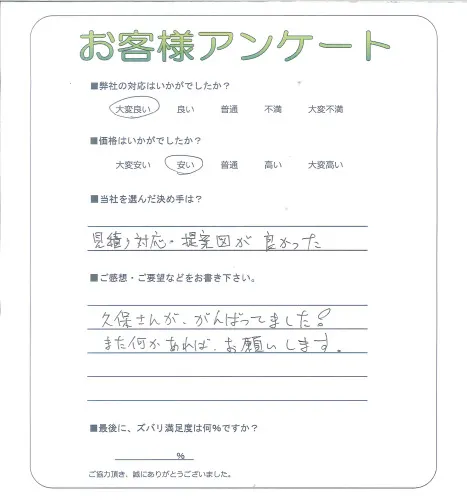 お客様アンケート
■弊社の対応はいかがでしたか？
大変良い 良い 普通 不満 大変不満
■価格はいかがでしたか？
大変安い 安い 普通 高い 大変高い
■当社を選んだ決め手は？
見積り対応・提案図が良かった
■ご感想・ご要望などをお書き下さい。
久保さんが、がんばってました！
また何かあれば、お願いします。
■最後に、ズバリ満足度は何%ですか？
%
ご協力頂き、誠にありがとうございました。